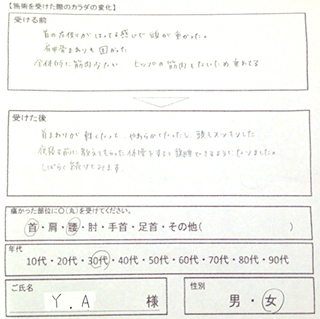 【施術を受けた際のカラダの変化】
受ける前
首の左側がはってる感じで頭が重かった。
まわりも固かった
全体的に筋肉がない ヒップの筋肉もないため垂れてる
受けた後
首まわりが軽くなって、やわらかくなったし、頭もスッキリした
前に教えてもらった体操をすると できるようになりました。
しばらく続けてみます
痛かった部位に○(丸)を受けてください。
首・肩・腰・肘・手首・足首・その他( )
年代
10代・20代・30代・40代・50代・60代・70代・80代・90代
ご氏名
Y.A 様
性別
男・女